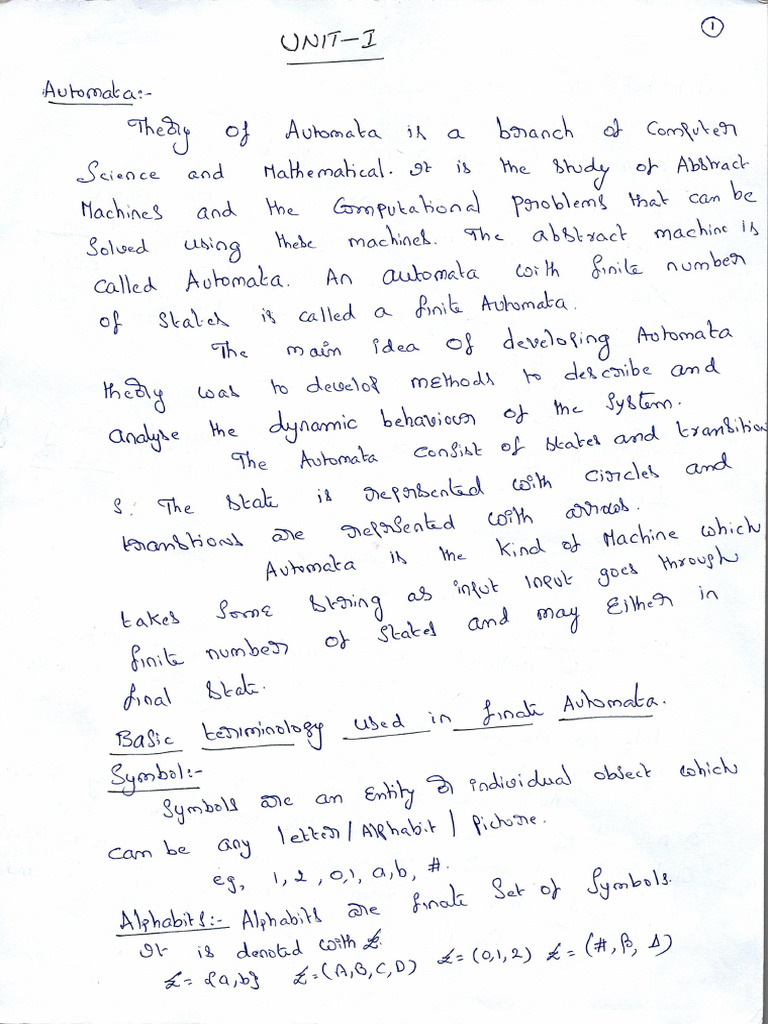 UNIT-I
1
Automata:-
Theory of Automata is a branch of Computer
Science and Mathematical. It is the study of Abstract
Machines and the Computational problems that can be
solved using these machines. The abstract machine is
called Automata. An automata with finite number
of states is called a finite Automata.
The main idea of developing Automata
theory was to develop methods to describe and
analyse the dynamic behaviour of the System.
The Automata consist of states and transition
s. The state is reprsented with circles and
transtions are reprsented with arrows.
Automata is the kind of Machine which
takes some string as input Input goes through
finite number of states and may Either in
final state.
Basic terminology used in finate Automata.
Symbol:-
Symbols are an Entity or individual object which
can be any letter/Alphabit/picture.
eg, 1, 2, 0,1, a,b, #.
Alphabits:- Alphabits are finate Set of Symbols.
It is denoted with Σ.
Σ={a,b} Σ=(A,B,C,D) Σ=(0,1,2) Σ=(#,β,Δ)